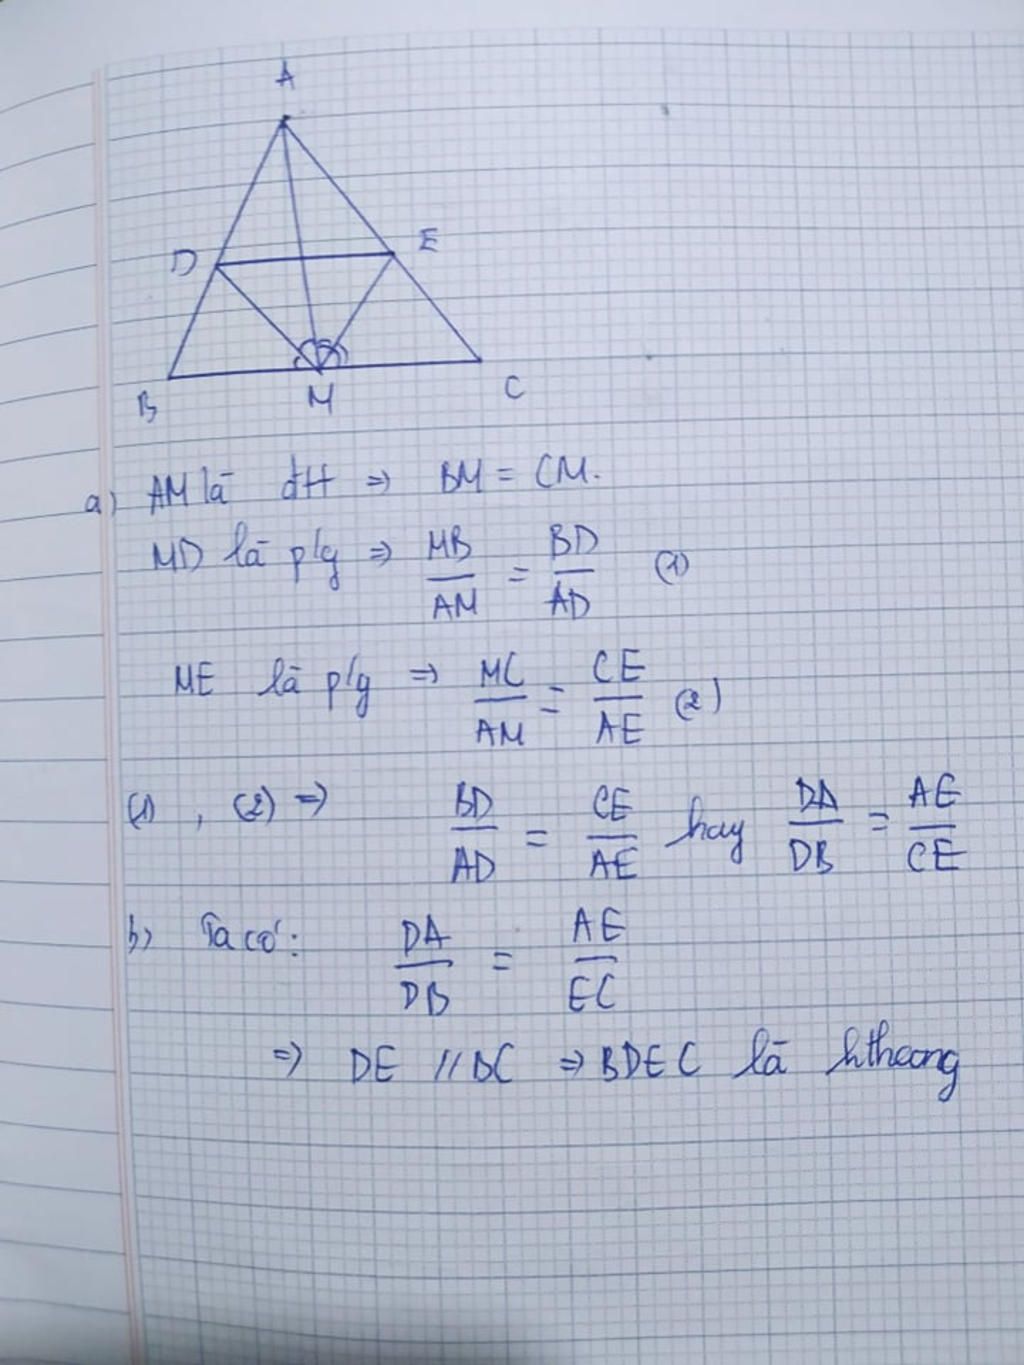 A
D
E
B
M
C
a) AM là đtt ⇒ BM = CM.
MD là p/g ⇒ MB/AM = BD/AD (1)
ME là p/g ⇒ MC/AM = CE/AE (2)
(1), (2) ⇒ BD/AD = CE/AE hay DA/DB = AE/CE
b) Ta có: DA/DB = AE/EC
⇒ DE // BC ⇒ BDEC là hthang